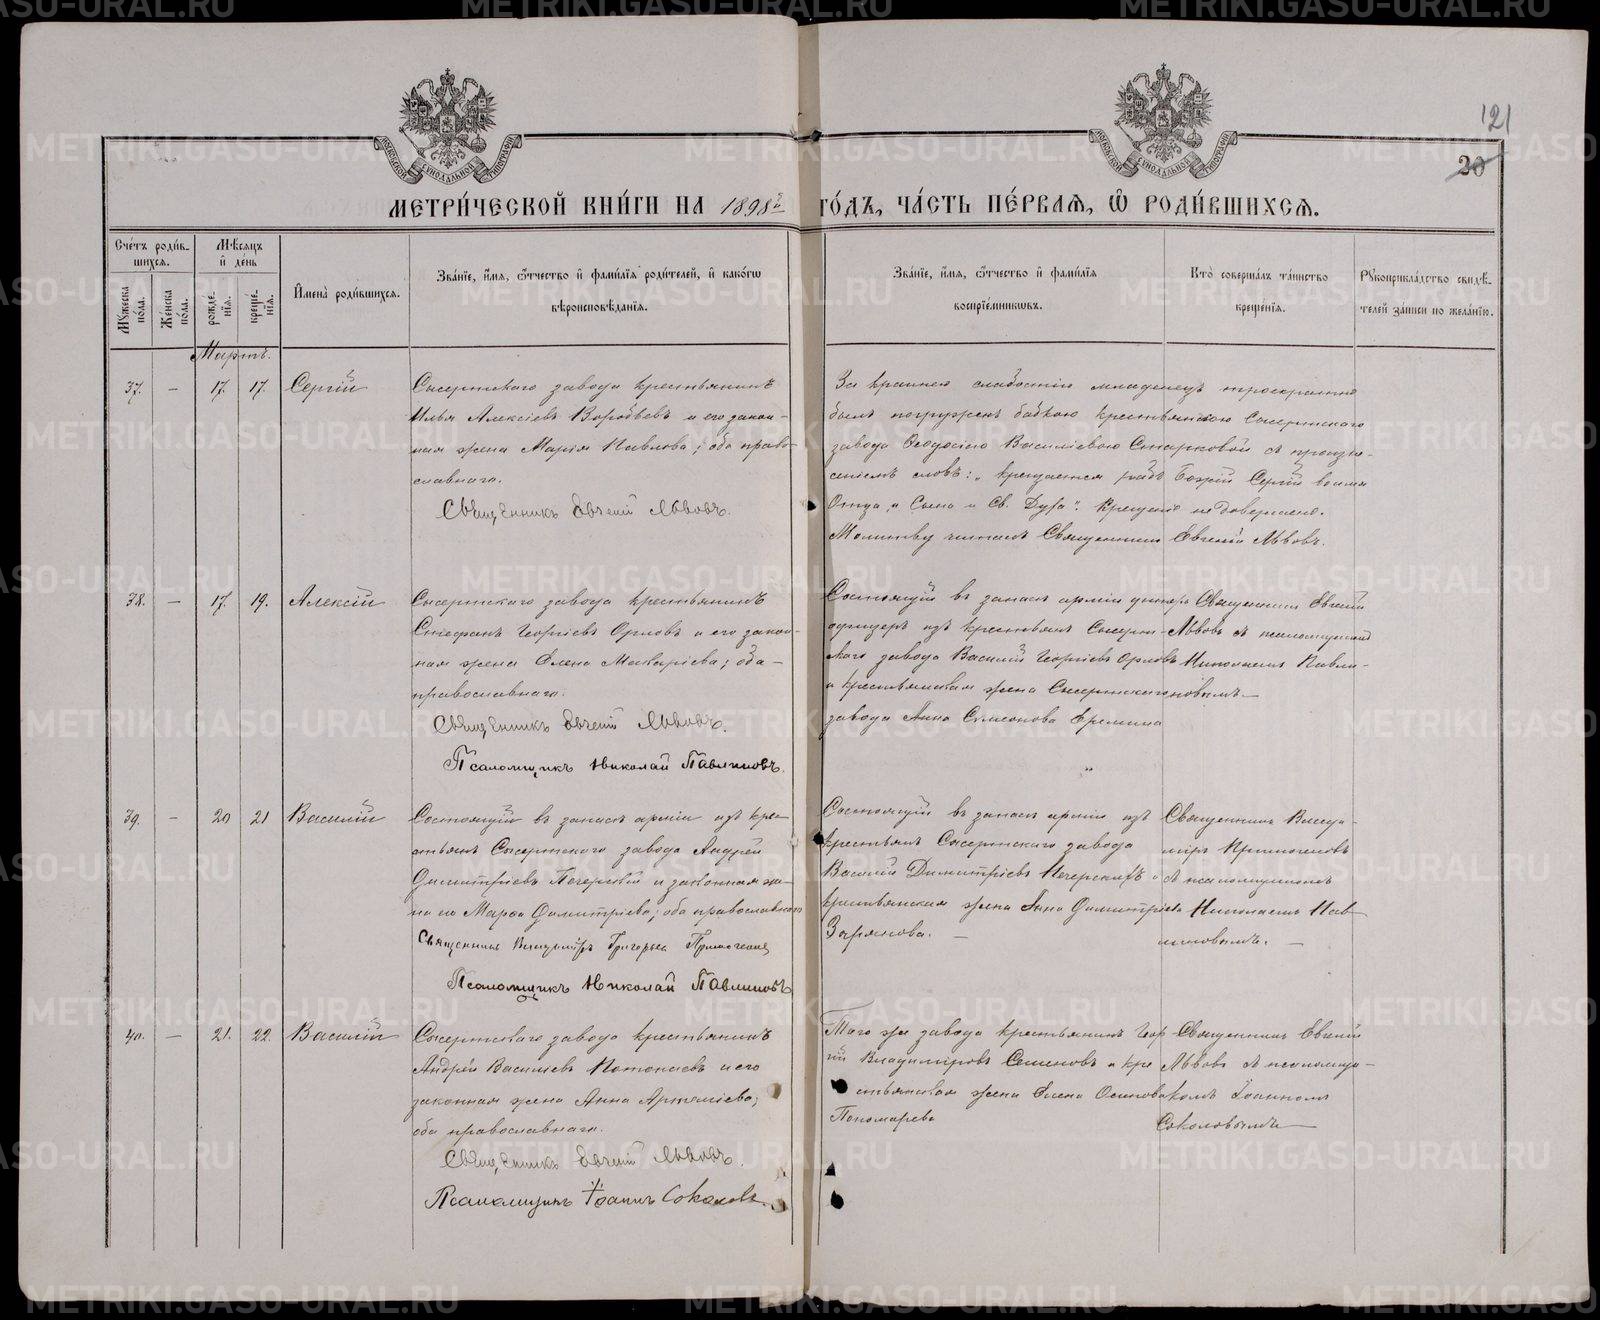 121
20
МЕТРИ́ЧЕСКОЙ КНИ́ГИ НА 1898й ГО́ДЪ, ЧА́СТЬ ПЕ́РВАЯ, Ѽ РОДИ́ВШИХСЯ.
Сче́тъ роди́в-
шихся.
Мꙋжеска по́ла.
Же́нска по́ла.
Мѣ́сяцъ
и҆ де́нь
рожде́нїя.
креще́нїя.
И҆мена̀ роди́вшихся.
Зва́нїе, и҆́мя, ѻ҆́тчество и҆ фами́лїя роди́телей, и҆ како́гѡ
вѣроисповѣ́данїя.
Зва́нїе, и҆́мя, ѻ҆́тчество и҆ фами́лїя
воспрїе́мникѡвъ.
Кто̀ соверша́лъ та́инство
креще́нїя.
Рꙋкоприкла́дство свидѣ́-
телей за́писи по жела́нїю.
Мартъ.
37. — 17. 17. Сергій
Сысертскаго завода крестьянинъ
Илья Алексіевъ Воробьевъ и его закон-
ная жена Марія Павлова; оба право-
славнаго.
Священникъ Евгеній Львовъ.
За крайнею слабостію младенецъ троекратно
былъ погруженъ бабкою крестьянкою Сысертскаго
завода Ѳеодосіею Василіевою Старковой съ произне-
сеніемъ словъ: „крещается рабъ Божій Сергій во имя
Отца, и Сына и Св. Духа“. Крещеніе не довершено.
Молитву читалъ Священникъ Евгеній Львовъ.
38. — 17. 19. Алексій
Сысертскаго завода крестьянинъ
Стефанъ Георгіевъ Орловъ и его закон-
ная жена Елена Макаріева; оба
православнаго.
Священникъ Евгеній Львовъ.
Псаломщикъ Николай Павлиновъ.
Состоящій въ запасѣ арміи унтеръ
офицеръ изъ крестьянъ Сысерт-
скаго завода Василій Георгіевъ Орловъ
и крестьянская жена Сысертскаго
завода Анна Симеонова Еремина
Священникъ Евгеній
Львовъ съ псаломщикомъ
Николаемъ Павли-
новымъ. —
39. — 20 21 Василій
Состоящій въ запасѣ арміи изъ кре-
стьянъ Сысертскаго завода Андрей
Димитріевъ Печерскій и законная же-
на его Марѳа Димитріева; оба православнаго
Священникъ Владиміръ Григорьевъ
Псаломщикъ Николай Павлиновъ
Состоящій въ запасѣ арміи изъ
крестьянъ Сысертскаго завода
Василій Димитріевъ Печерскій и
крестьянская жена Анна Димитріева
Зырянова. —
Священникъ Влади-
міръ
съ псаломщикомъ
Николаемъ Пав-
линовымъ. —
40. — 21. 22. Василій
Сысертскаго завода крестьянинъ
Андрей Василіевъ и его
законная жена Анна Артеміева;
оба православнаго.
Священникъ Евгеній Львовъ.
Псаломщикъ Іоаннъ Соколовъ.
Того же завода крестьянинъ Геор
гій Владиміровъ Семеновъ и кре
стьянская жена Елена Осипова
Пономарева
Священникъ Евгеній
Львовъ съ псаломщи-
комъ Іоанномъ
Соколовымъ —
METRIKI.GASO-URAL.RU